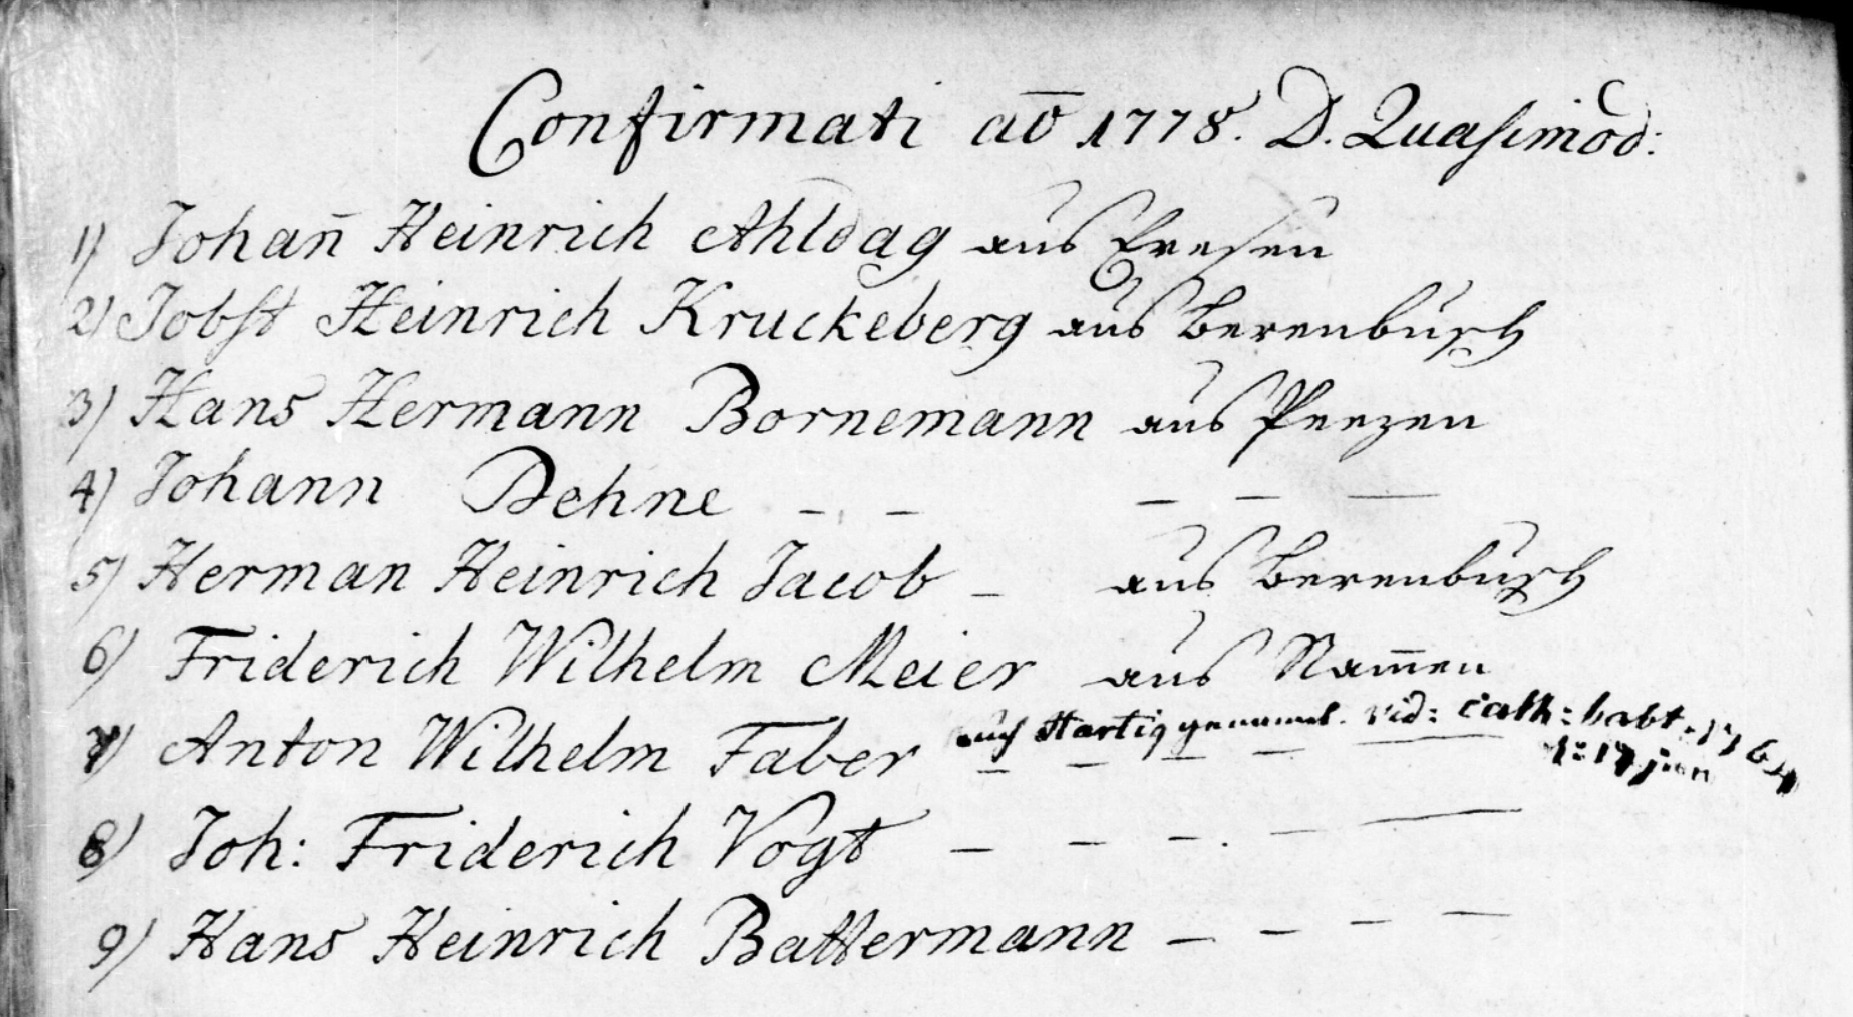 Confirmati aō 1778. D. Quasimod:
1) Johañ Heinrich Ahldag aus Evesen
2) Jobst Heinrich Kruckeberg aus Berenbusch
3) Hans Hermann Bornemann aus Peezen
4) Johann Dehne - - - - -
5) Herman Heinrich Jacob - aus Berenbusch
6) Friderich Wilhelm Meier aus Nam̄en
7) Anton Wilhelm Faber - - - - -
auch Hartig genannt. vid: cath: babt. 1764
d: 17 jun
8) Joh: Friderich Vogt - - - - -
9) Hans Heinrich Battermann - - - -